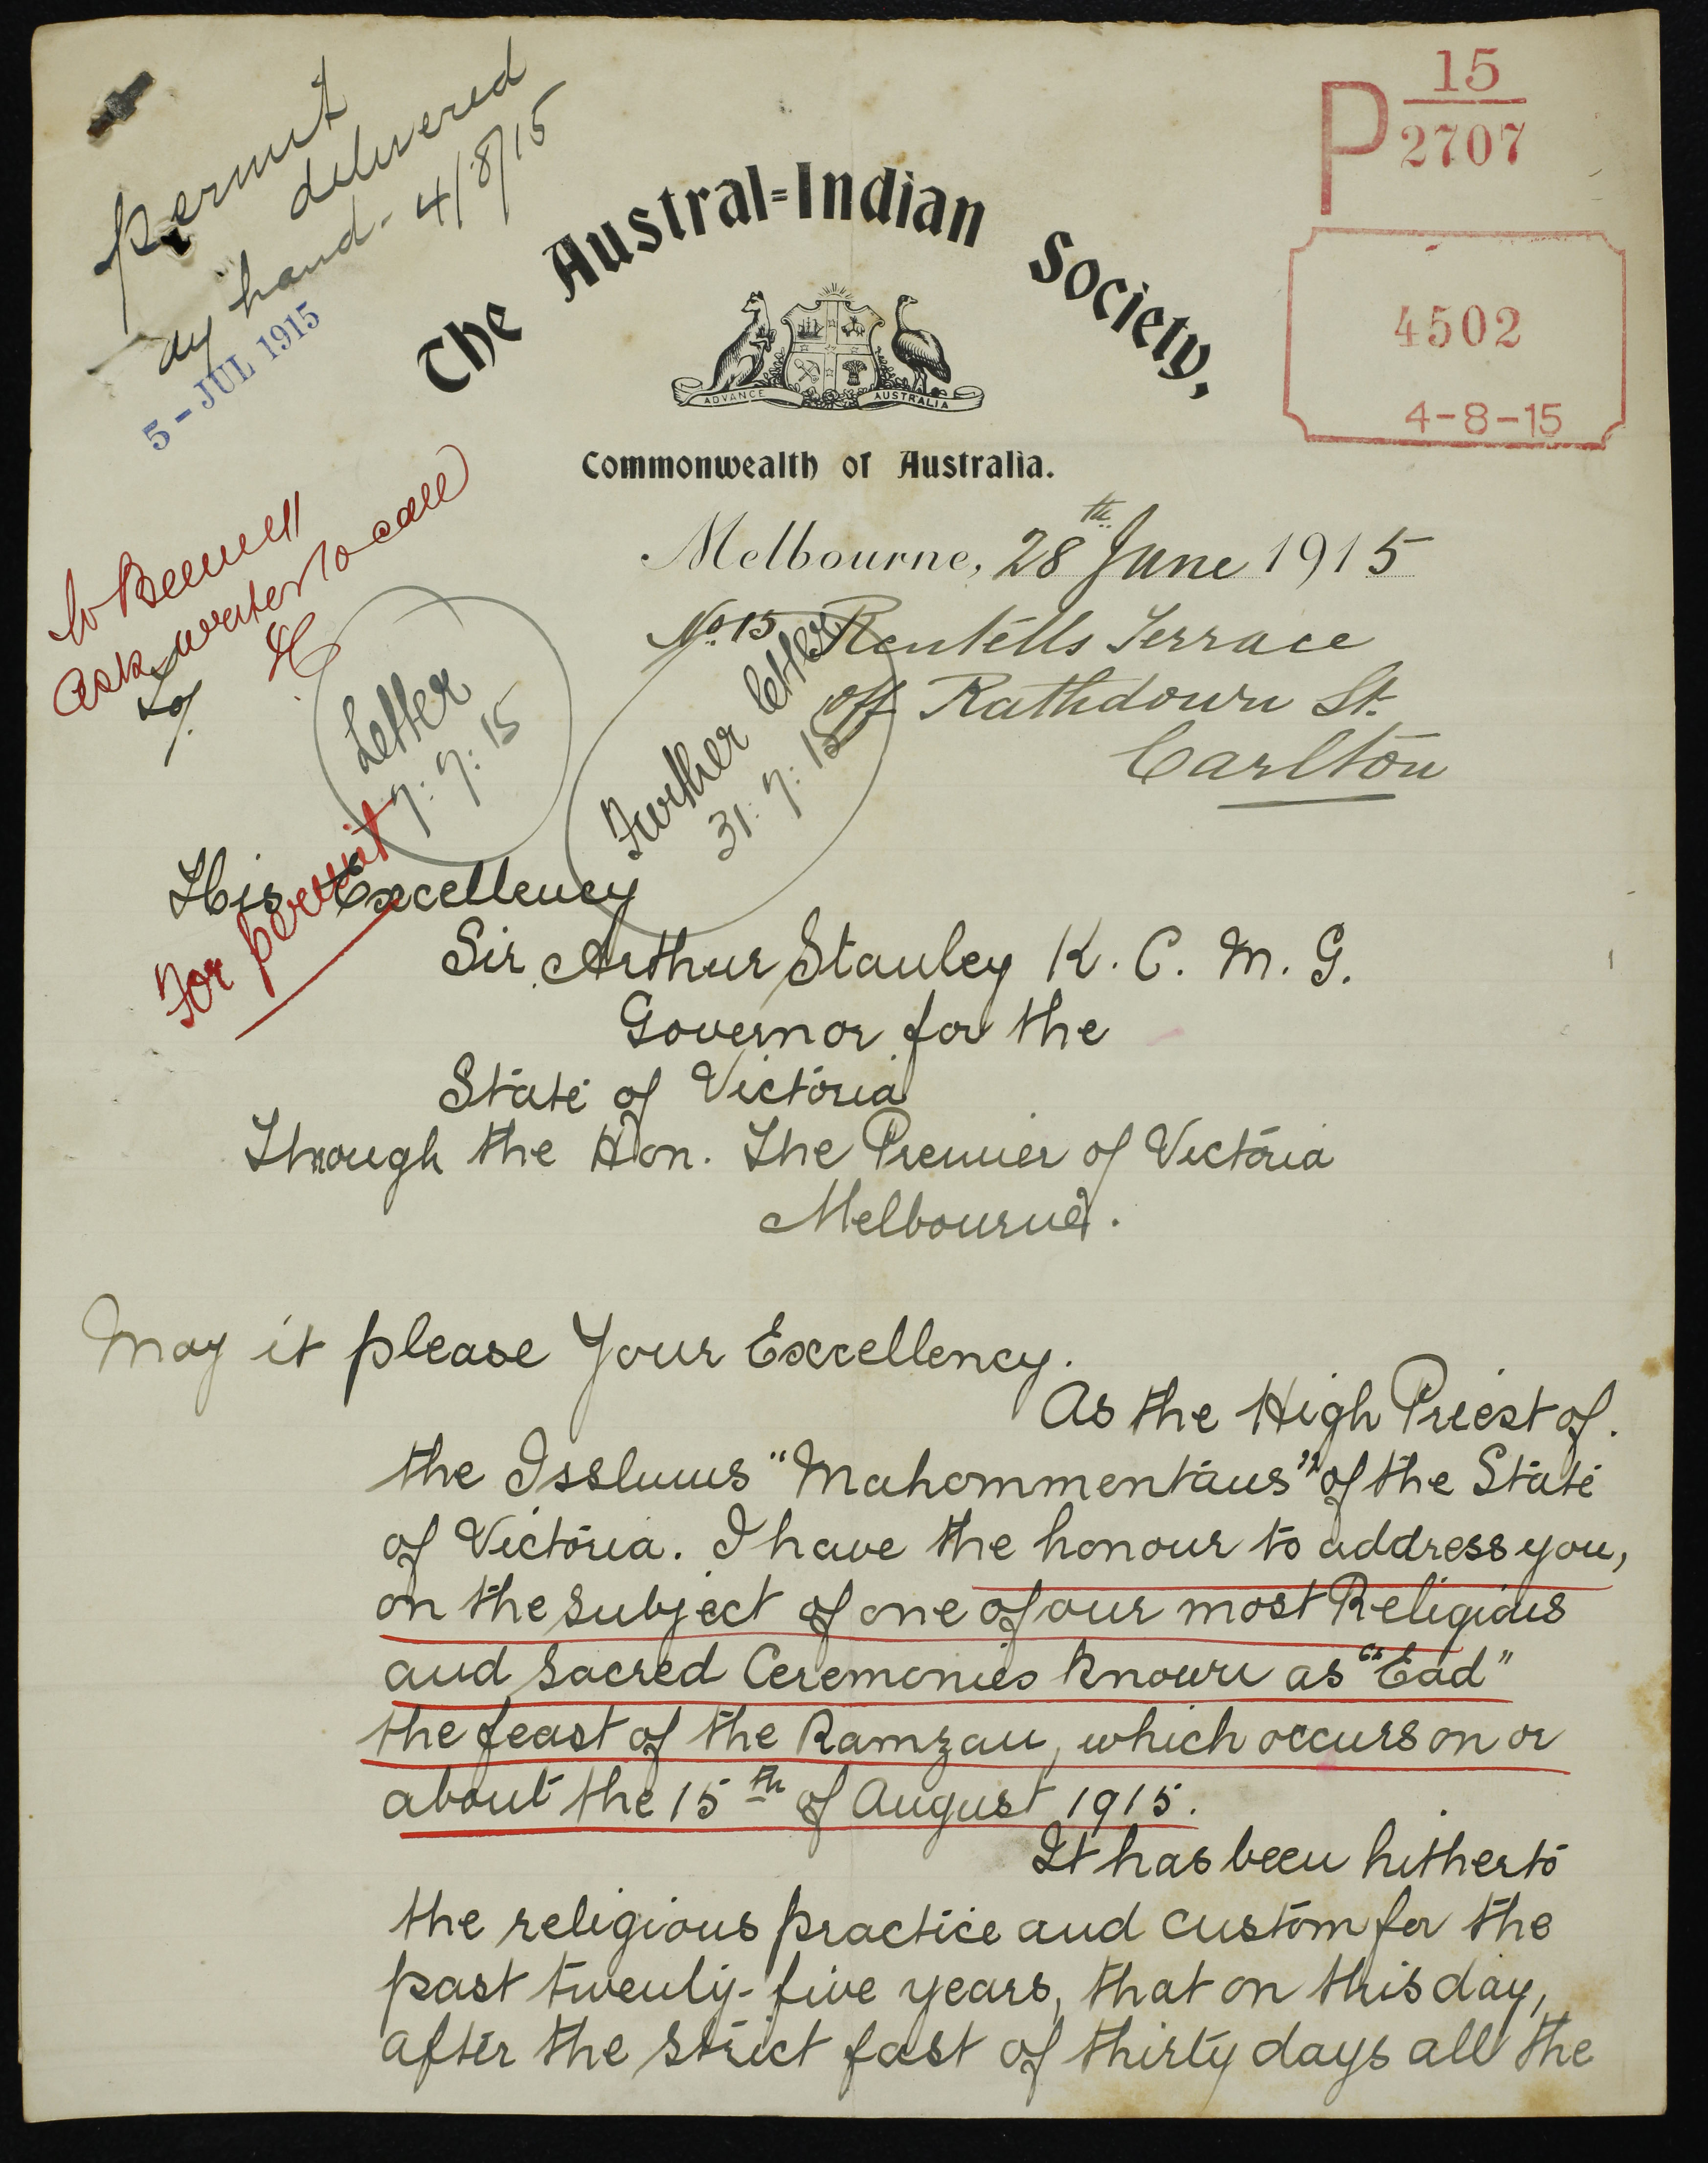 permit
delivered
by hand - 4/8/15
5 - JUL 1915
P 15
2707
4502
4-8-15
The Austral=Indian Society,
ADVANCE AUSTRALIA
Commonwealth of Australia.
Melbourne, 28th June 1915
No. 15 Rentells Terrace
off Rathdown St.
Carlton
Ask writer to call
Letter
7:7:15
Further letter
31:7:15
For permit
His Excellency
Sir Arthur Stanley K. C. M. G.
Governor for the
State of Victoria
Through the Hon. The Premier of Victoria
Melbourne.
May it please Your Excellency.
As the High Priest of.
the Isslums "Mahommentans" of the State
of Victoria. I have the honour to address you,
on the subject of one of our most Religious
and sacred Ceremonies known as "Ead"
the feast of the Ramzan, which occurs on or
about the 15th of August 1915.
It has been hitherto
the religious practice and custom for the
past twenty-five years, that on this day,
after the strict fast of thirty days all the